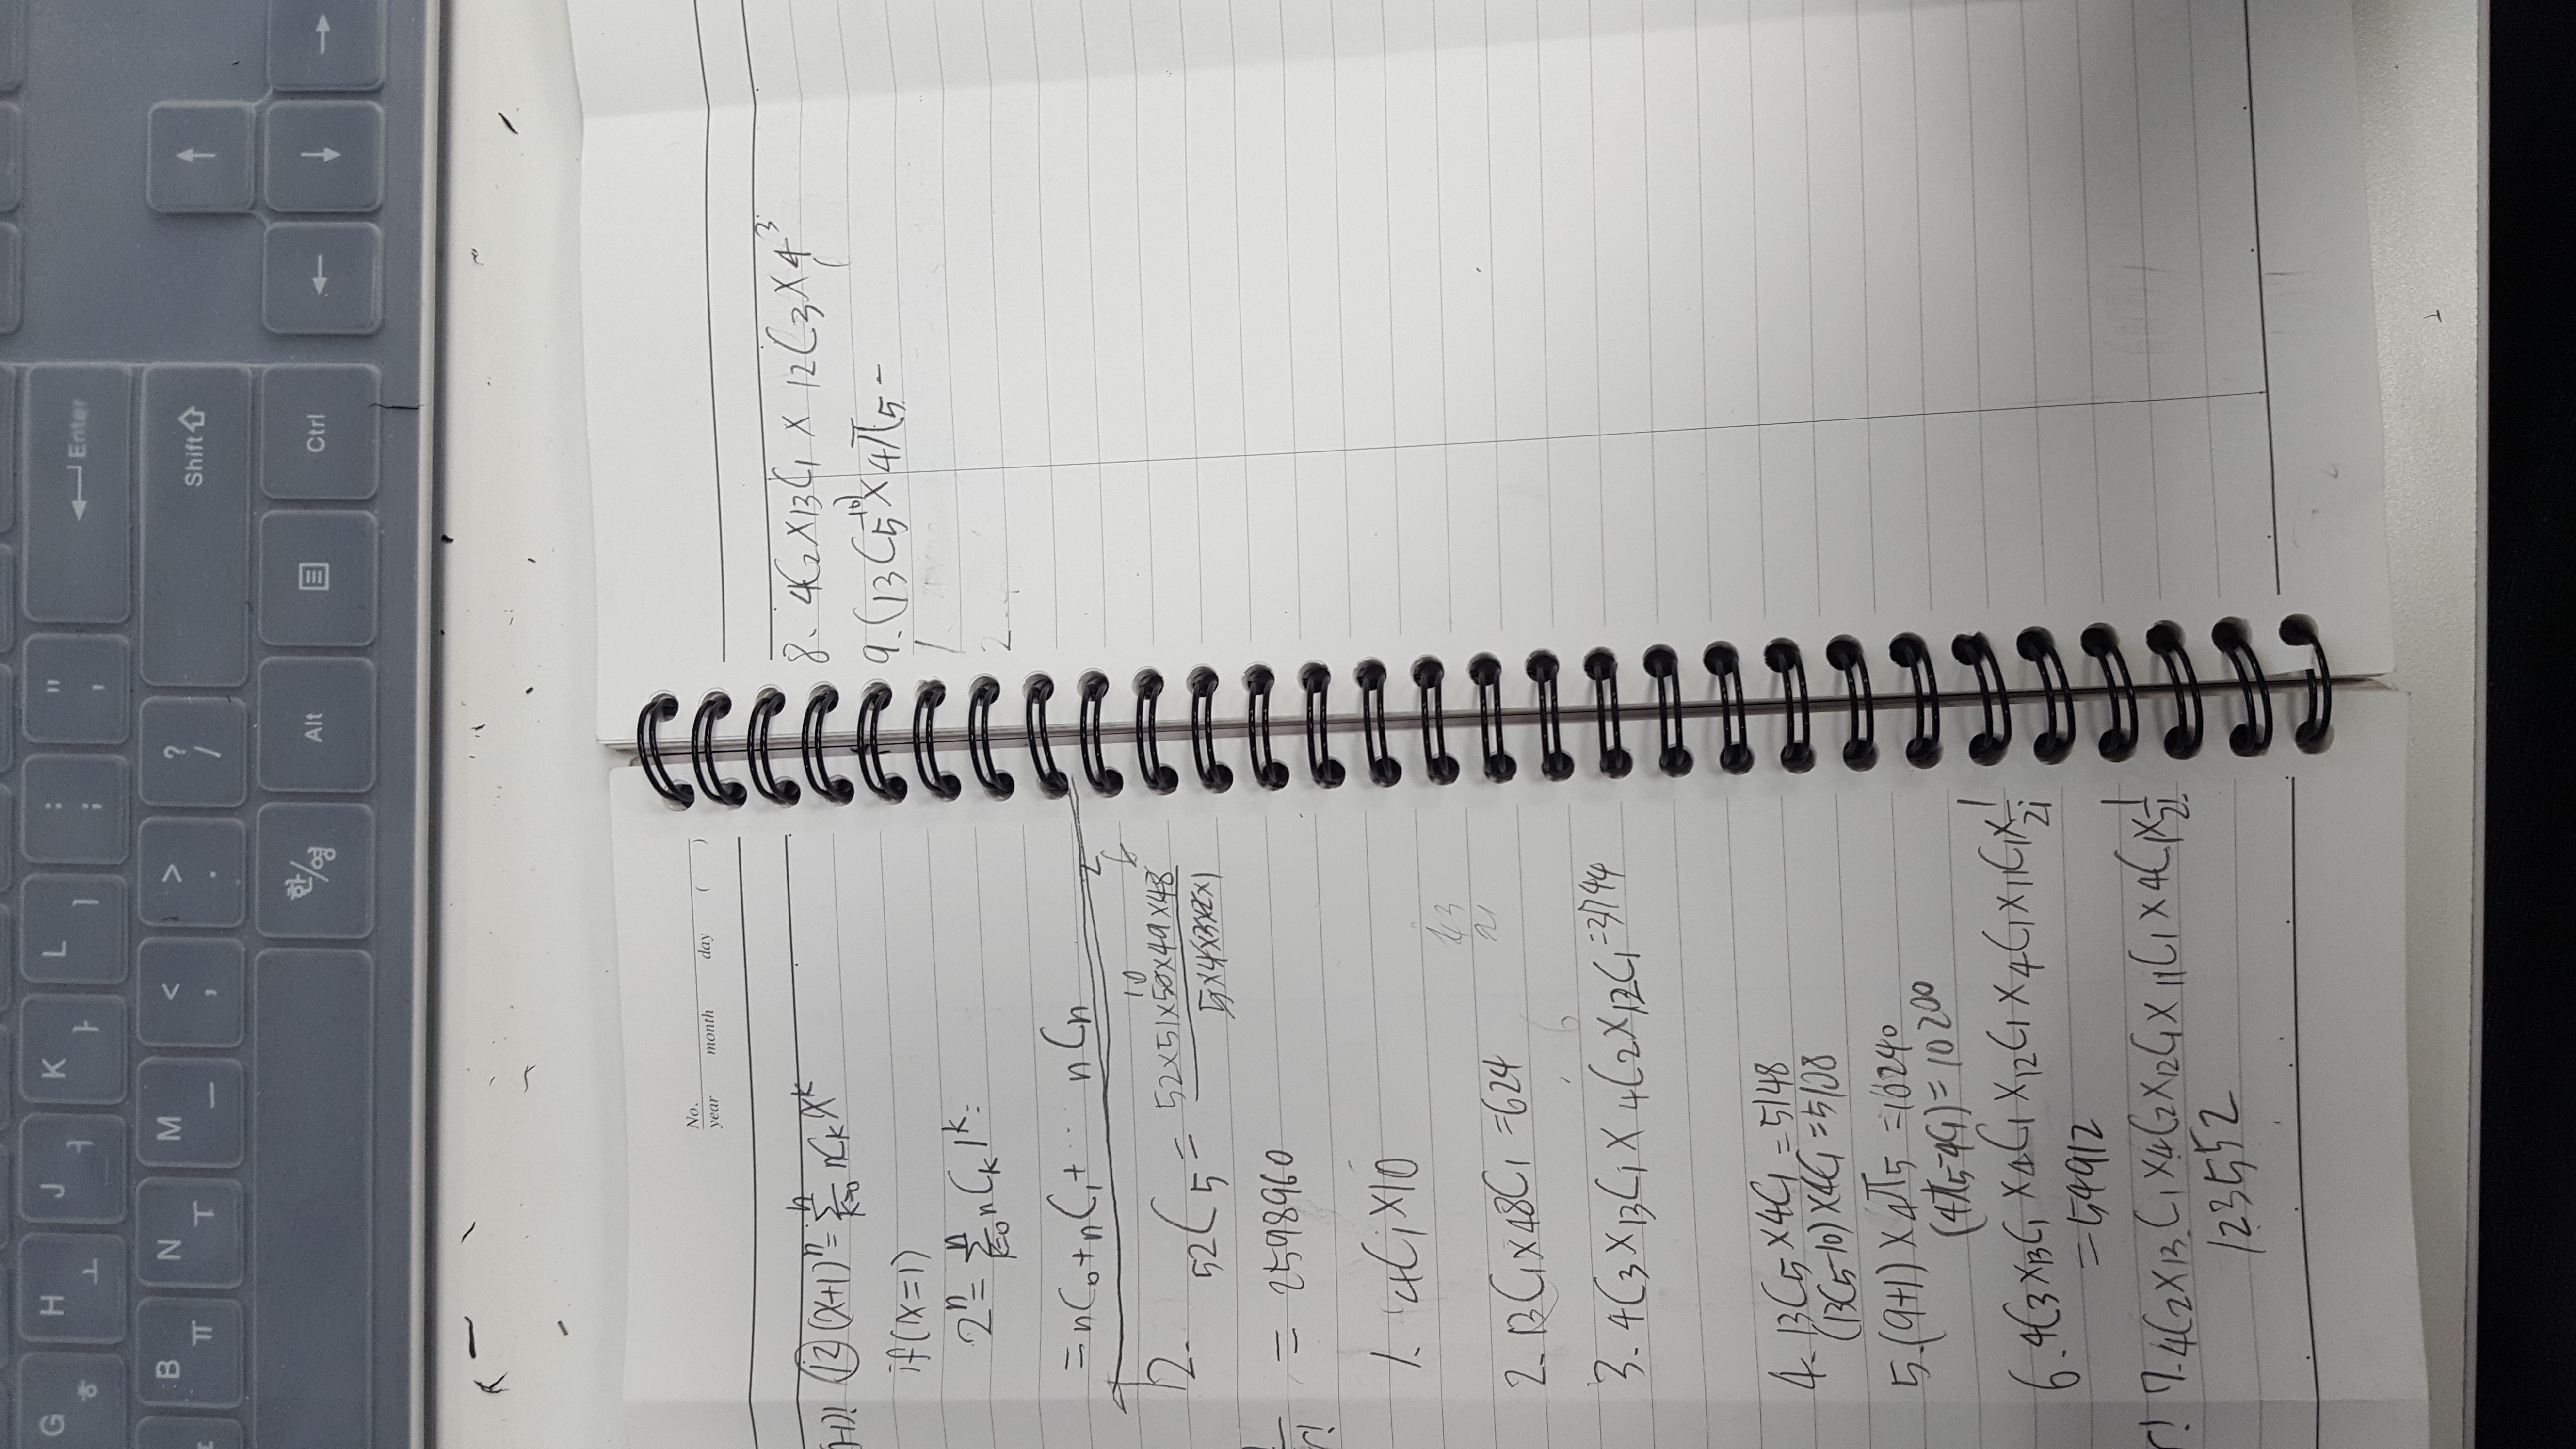 G ㅎ H ㅗ J ㅓ K ㅏ L ㅣ : ; " ' Enter
B ㅠ N ㅜ M ㅡ < , > . ? / Shift
한/영 Alt Ctrl
No.
year month day ( )
⑫ (x+1)^n = Σ_{k=0}^{n} nCk x^k
if(x=1)
2^n = Σ_{k=0}^{n} nCk 1^k =
= nC0 + nC1 + ... nCn
2.
10 6 2
52C5 = 52×51×50×49×48 / 5×4×3×2×1
r!
= 2598960
1. 4C1×10
2. 13C1×48C1 = 624
3. 4C3×13C1×4C2×12C1 = 3744
4. 13C5×4C1 = 5148
(13C5-10)×4C1 = 5108
5. (9+1)×4π5 = 10240
(4π5-4C1) = 10200
6. 4C3×13C1×4C1×12C1×4C1×11C1×1/2!
= 54912
r! 7. 4C2×13C1×4C2×12C1×11C1×4C1×1/2!
123552
8. 4C2×13C1×12C3×4^3
9. (13C5-10)×4π5-
1.
2.